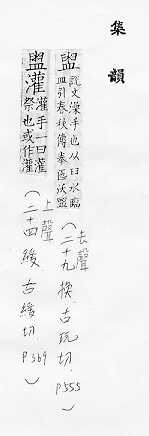 集韻
盥 說文澡手也从臼水臨
皿引春秋傳奉匜沃盥
（去聲
二十九換 古玩切 P555）
盥灌 澡手一曰灌
祭也或作灌
（上聲
二十四緩 古緩切 P369）